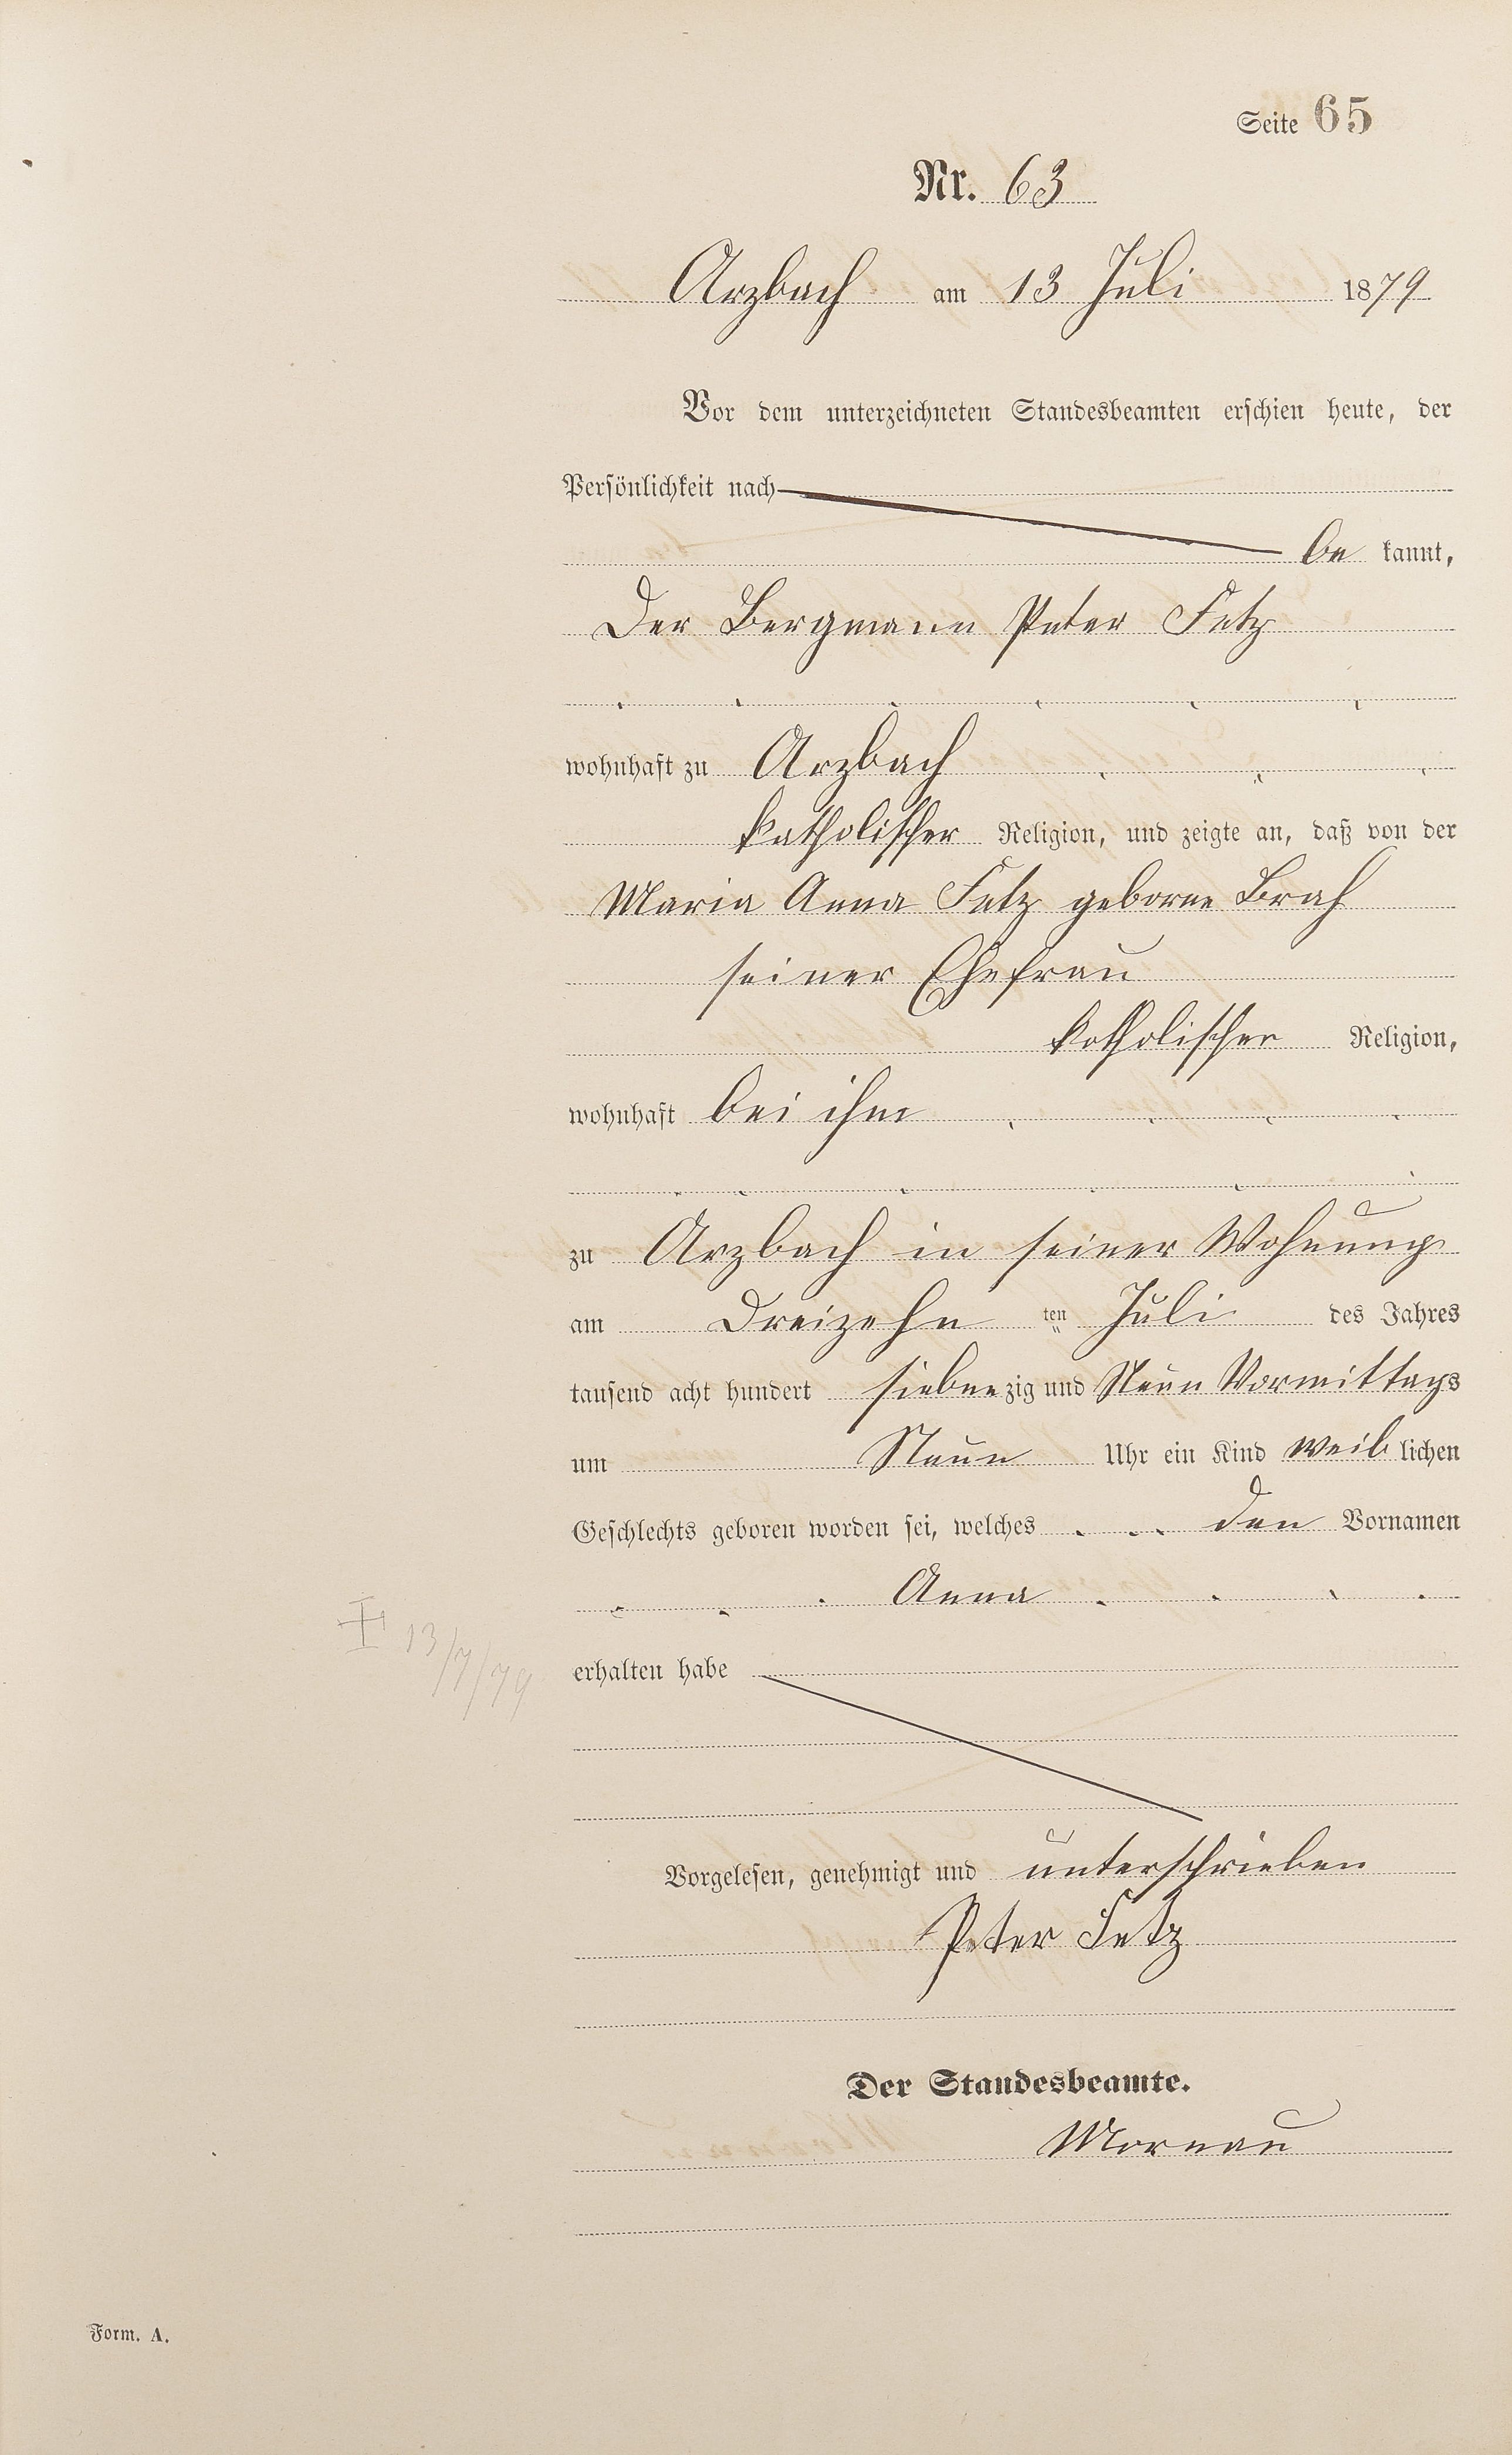 Seite 65
Nr. 63
Arzbach am 13 Juli 1879
Vor dem unterzeichneten Standesbeamten erschien heute, der
Persönlichkeit nach
be kannt,
Der Bergmann Peter Fetz
wohnhaft zu Arzbach
katholischer Religion, und zeigte an, daß von der
Maria Anna Fetz geborne Brah
seiner Ehefrau
katholischer Religion,
wohnhaft bei ihm
zu Arzbach in seiner Wohnung
am Dreizehn ten Juli des Jahres
tausend acht hundert siebenzig und Neun Vormittags
um Neun Uhr ein Kind weib lichen
Geschlechts geboren worden sei, welches den Vornamen
Anna
╪ 13/7/79
erhalten habe
Vorgelesen, genehmigt und unterschrieben
Peter Fetz
Der Standesbeamte.
Mornau
Form. A.